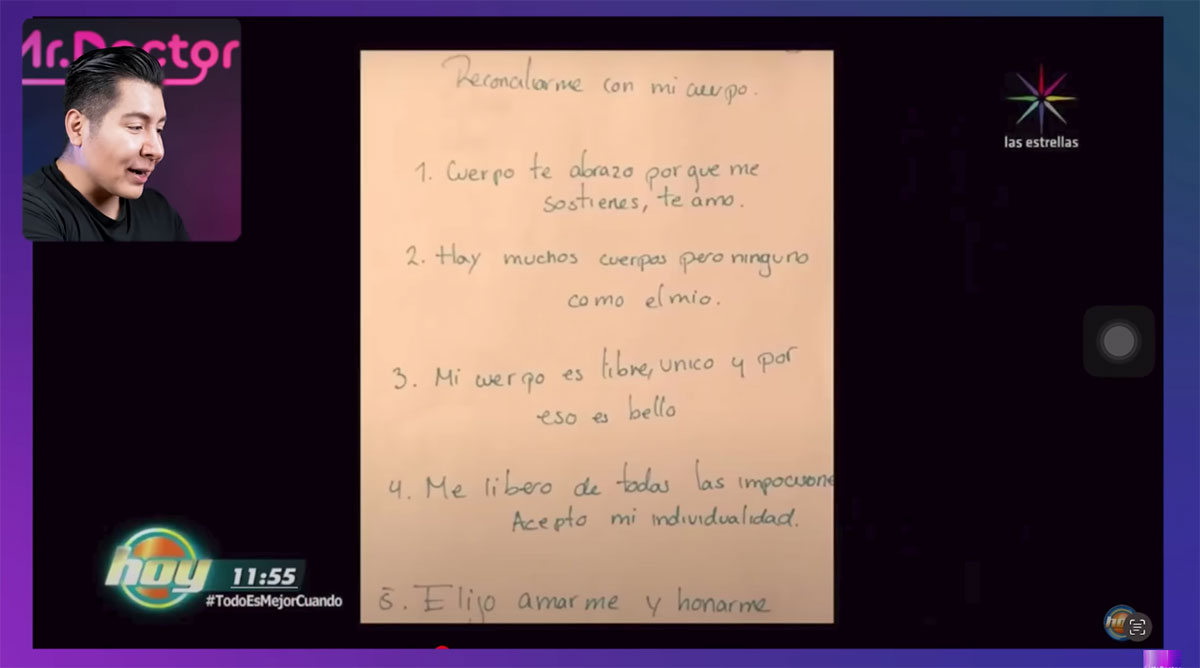 Mr.Doctor
Reconciliarme con mi cuerpo.
las estrellas
1. Cuerpo te abrazo por que me
sostienes, te amo.
2. Hay muchos cuerpos pero ninguno
como el mio.
3. Mi cuerpo es libre, unico y por
eso es bello
4. Me libero de todas las
Acepto mi individualidad.
5. Elijo amarme y honarme
hoy 11:55
#TodoEsMejorCuando